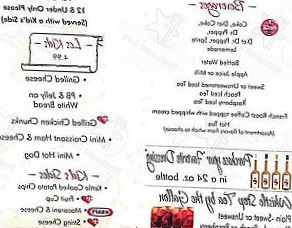 12 & Under Only Please
(Served with a Kid's Side)
~ Les Kids ~
4.99
• Grilled Cheese
• PB Jelly on
White Bread
• Grilled Chicken Chunks
• Mini Croissant Ham & Cheese
• Mini Hot Dog
~ Kid's Sides ~
• Kettle Cooked Potato Chips
• Fruit Cup
• Macaroni & Cheese
KRAFT
• String Cheese
~ Beverages ~
Coke, Diet Coke,
Dr. Pepper,
Diet Dr. Pepper, Sprite
Lemonade
Bottled Water
Apple Juice or Milk
Sweet or Unsweetened Iced Tea
Peach Iced Tea
Raspberry Iced Tea
French Roast Coffee topped with whipped cream
Hot Tea
(Assortment of flavors from which choose)
Purchase your Favorite Dressing
in a 24 oz. bottle
Whistle Stop Tea by the Gallon
Plain-Sweet or Unsweet